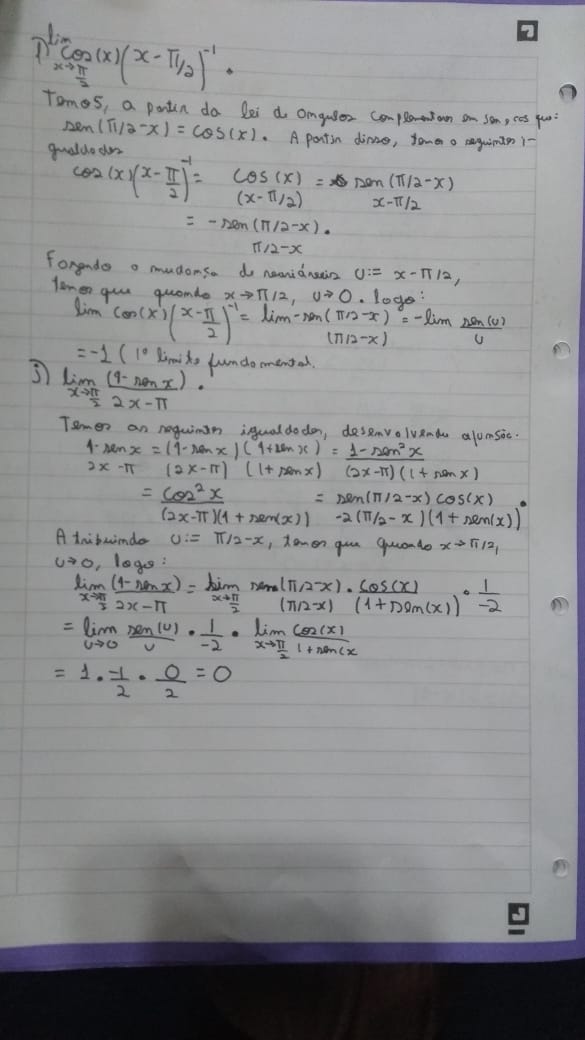 1) lim x→π/2 cos(x)(x - π/2)^-1.
Temos, a partir da lei de ângulos complementares em sen, cos que:
sen(π/2-x) = cos(x). A partir disso, temos o seguinte i-
gualdades
cos(x)(x-π/2)^-1 = cos(x)/(x-π/2) = sen(π/2-x)/x-π/2
= -sen(π/2-x)/π/2-x.
Fazendo a mudança de variáveis u:= x-π/2,
temos que quando x→π/2, u→0. logo:
lim cos(x)(x-π/2)^-1 = lim -sen(π/2-x)/(π/2-x) = -lim sen(u)/u
= -1 (1º limite fundamental.
j) lim x→π/2 (1-sen x)/2x-π.
Temos as seguintes igualdades, desenvolvendo a função.
1-sen x/2x-π = (1-sen x)/(2x-π) (1+sen x)/(1+sen x) = 1-sen²x/(2x-π)(1+sen x)
= cos²x/(2x-π)(1+sen(x)) = sen(π/2-x)cos(x)/-2(π/2-x)(1+sen(x)).
Atribuindo u:= π/2-x, temos que quando x→π/2,
u→0, logo:
lim x→π/2 (1-sen x)/2x-π = lim x→π/2 sen(π/2-x)/(π/2-x) · cos(x)/(1+sen(x)) · 1/-2
= lim u→0 sen(u)/u · 1/-2 · lim x→π/2 cos(x)/1+sen(x
= 1 · -1/2 · 0/2 = 0